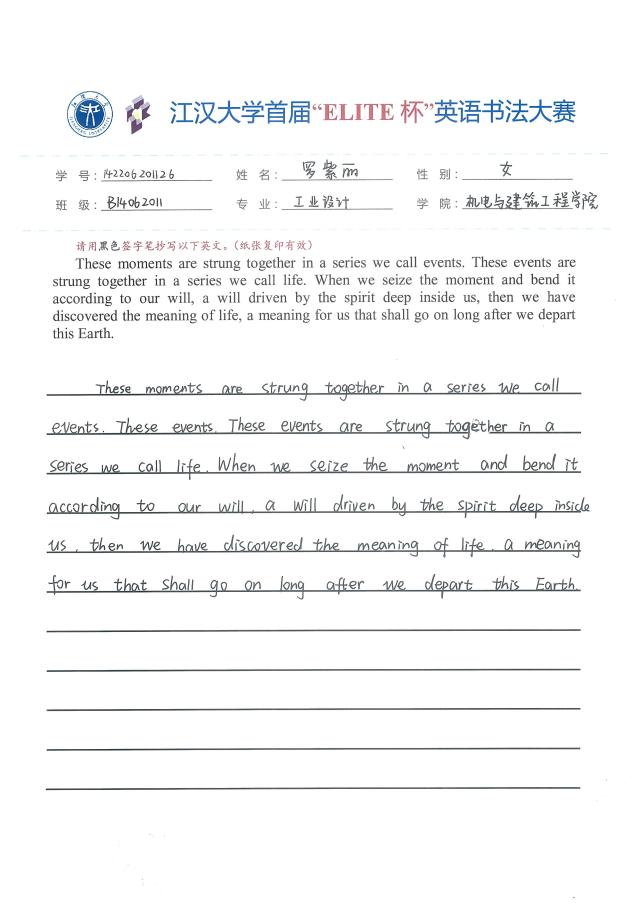 江汉大学首届“ELITE 杯”英语书法大赛
学 号：142206201126 姓 名：罗紫丽 性 别：女
班 级：B14062011 专 业：工业设计 学 院：机电与建筑工程学院
请用黑色签字笔抄写以下英文。（纸张复印有效）
These moments are strung together in a series we call events. These events are
strung together in a series we call life. When we seize the moment and bend it
according to our will, a will driven by the spirit deep inside us, then we have
discovered the meaning of life, a meaning for us that shall go on long after we depart
this Earth.
These moments are strung together in a series we call
events. These events. These events are strung together in a
series we call life. When we seize the moment and bend it
according to our will, a will driven by the spirit deep inside
us, then we have discovered the meaning of life, a meaning
for us that shall go on long after we depart this Earth.